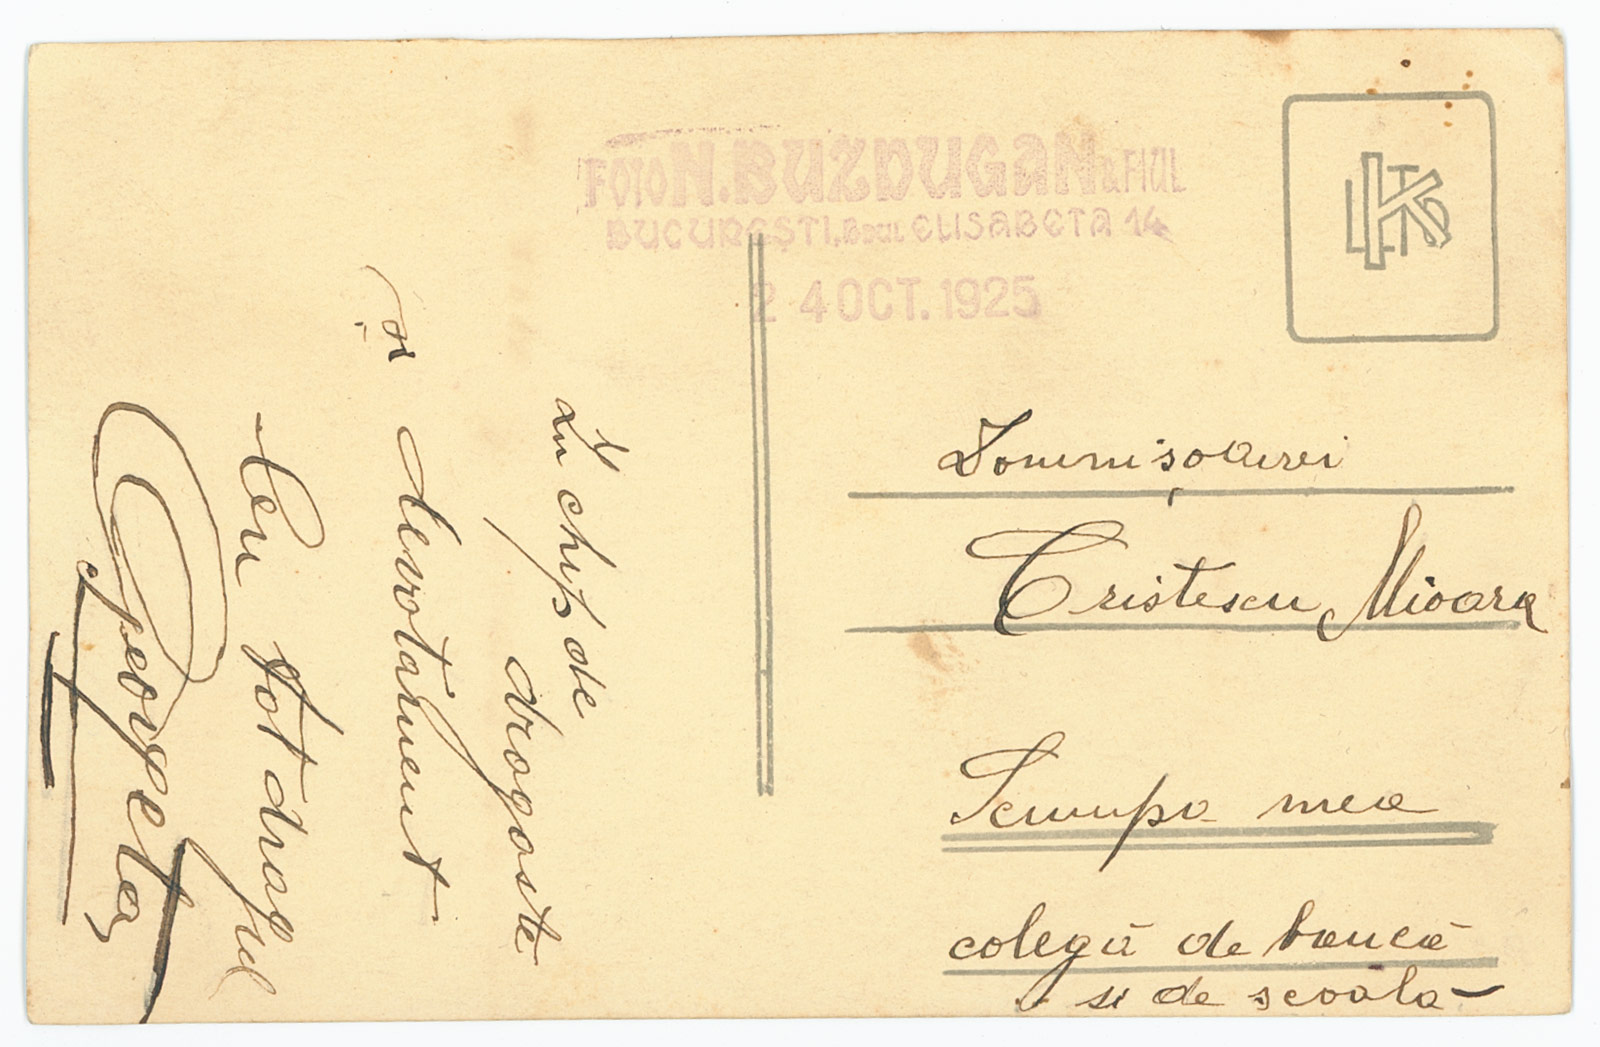 FOTO N. BUZDUGAN & FIUL
BUCUREȘTI, Bdul ELISABETA 14
24 OCT. 1925
Domnișoarei
Cristescu Mioara
Scumpa mea
colegă de bancă
si de scoala
In chip de
dragoste
și devotament
Cu tot dragul
Georgeta